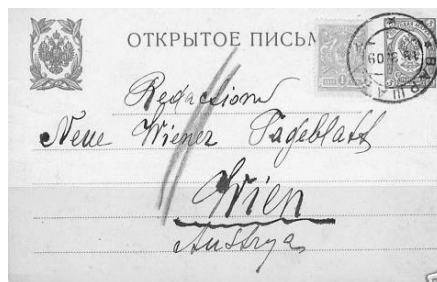 ОТКРЫТОЕ ПИСЬМ
Redaction
Neue Wiener Tageblatt
Wien
Austrya